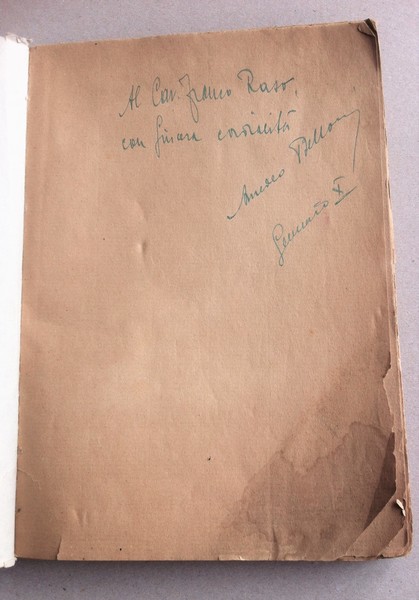 Al Cav. Franco Raso,
con sincera cordialità
Amedeo
Gennaio X